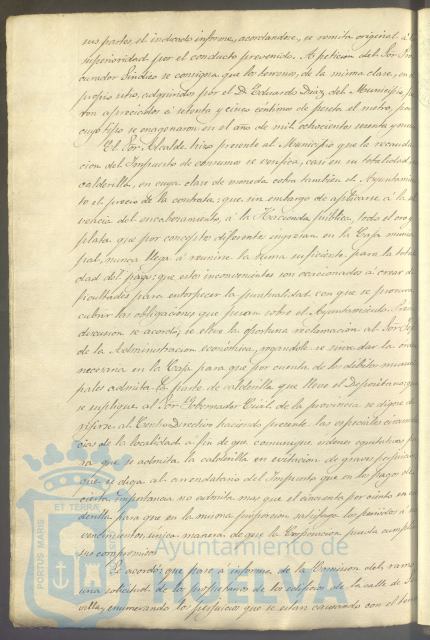 sus partes, el indicado informe, acordándose, se remita original á la
superioridad por el conducto prevenido. A peticion del Sor Pro
curador Síndico se consigna que los terrenos, de la misma clase, en
propio sitio, adquiridos por el D. Eduardo Diaz, del Municipio,
ron apreciados á setenta y cinco céntimos de peseta el metro, por
cuyo tipo se enagenaron en el año de mil ochocientos sesenta y nueve
El Sor Alcalde hizo presente al Municipio que la recauda
cion del Impuesto de consumo se verifica, casi en su totalidad,
calderilla, en cuya clase de moneda cobra tambien el Ayuntamien
to el precio de la contrata: que sin embargo de aplicarse á la
vencia del encabezamiento, á la Hacienda pública, todo el oro y
plata que por conceptos diferentes ingresan en la Caja munici
pal, nunca llega á reunirse la suma suficiente para la tota
dad del pago: que estos inconvenientes son ocasionados á crear di
ficultades para entorpecer la puntualidad con que se procura
cubrir las obligaciones que pesan sobre el Ayuntamiento. Previa
discusion se acordó, se eleve la oportuna reclamacion al Sor Jefe
de la Administracion económica, rogándole se sirva dar la orden
necesaria en la Caja para que por cuenta de los débitos munici
pales admita la parte de calderilla que lleve el Depositario; que
se suplique al Sor Gobernador Civil de la provincia se digne
al Centro Directivo haciendo presente las especiales circunstan
cias de la localidad á fin de que comunique órdenes equitativas pa
ra que se admita la calderilla en evitacion de graves perjuicios
que se diga al arrendatario del Impuesto que en los pagos de
cierta importancia no admita mas que el cincuenta por ciento en cal
derilla para que en la misma proporcion satisfaga los
vencimientos, única manera de que la Corporacion pueda cumplir
sus compromisos
Se acordó que pase á informe de la Comision del ramo
una solicitud de los propietarios de los edificios de la calle de
villa, enumerando los perjuicios que se estan causando con el
PORTUS MARIS
ET TERRAE
Ayuntamiento de
HUELVA